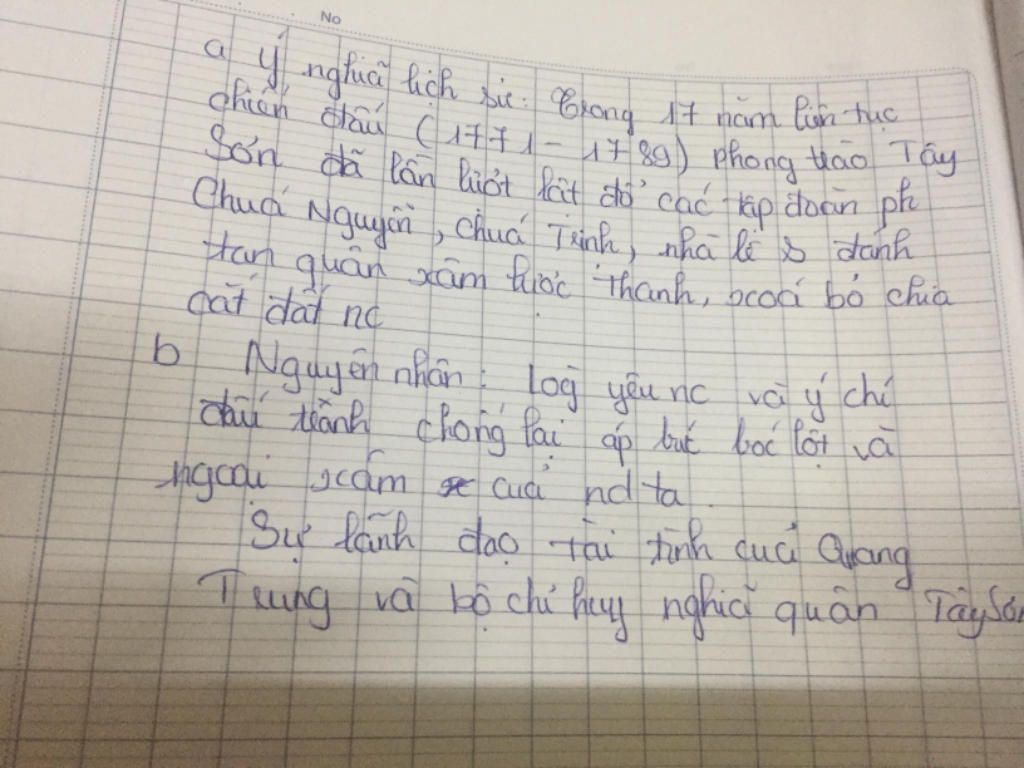 No
a Ý nghĩa lịch sử: Trong 17 năm liên tục
chiến đấu (1771-1789) phong trào Tây
Sơn đã lần lượt lật đổ các tập đoàn ph
Chúa Nguyễn, chúa Trịnh, nhà lê đánh
tan quân xâm lược thanh, xoá bỏ chia
cắt đất nc
b Nguyên nhân: lòg yêu nc và ý chí
đấu tranh chống lại áp bức bóc lột và
ngoại xâm của nd ta.
Sự lãnh đạo tài tình của Quang
Trung và bộ chỉ huy nghĩa quân Tây Sơn